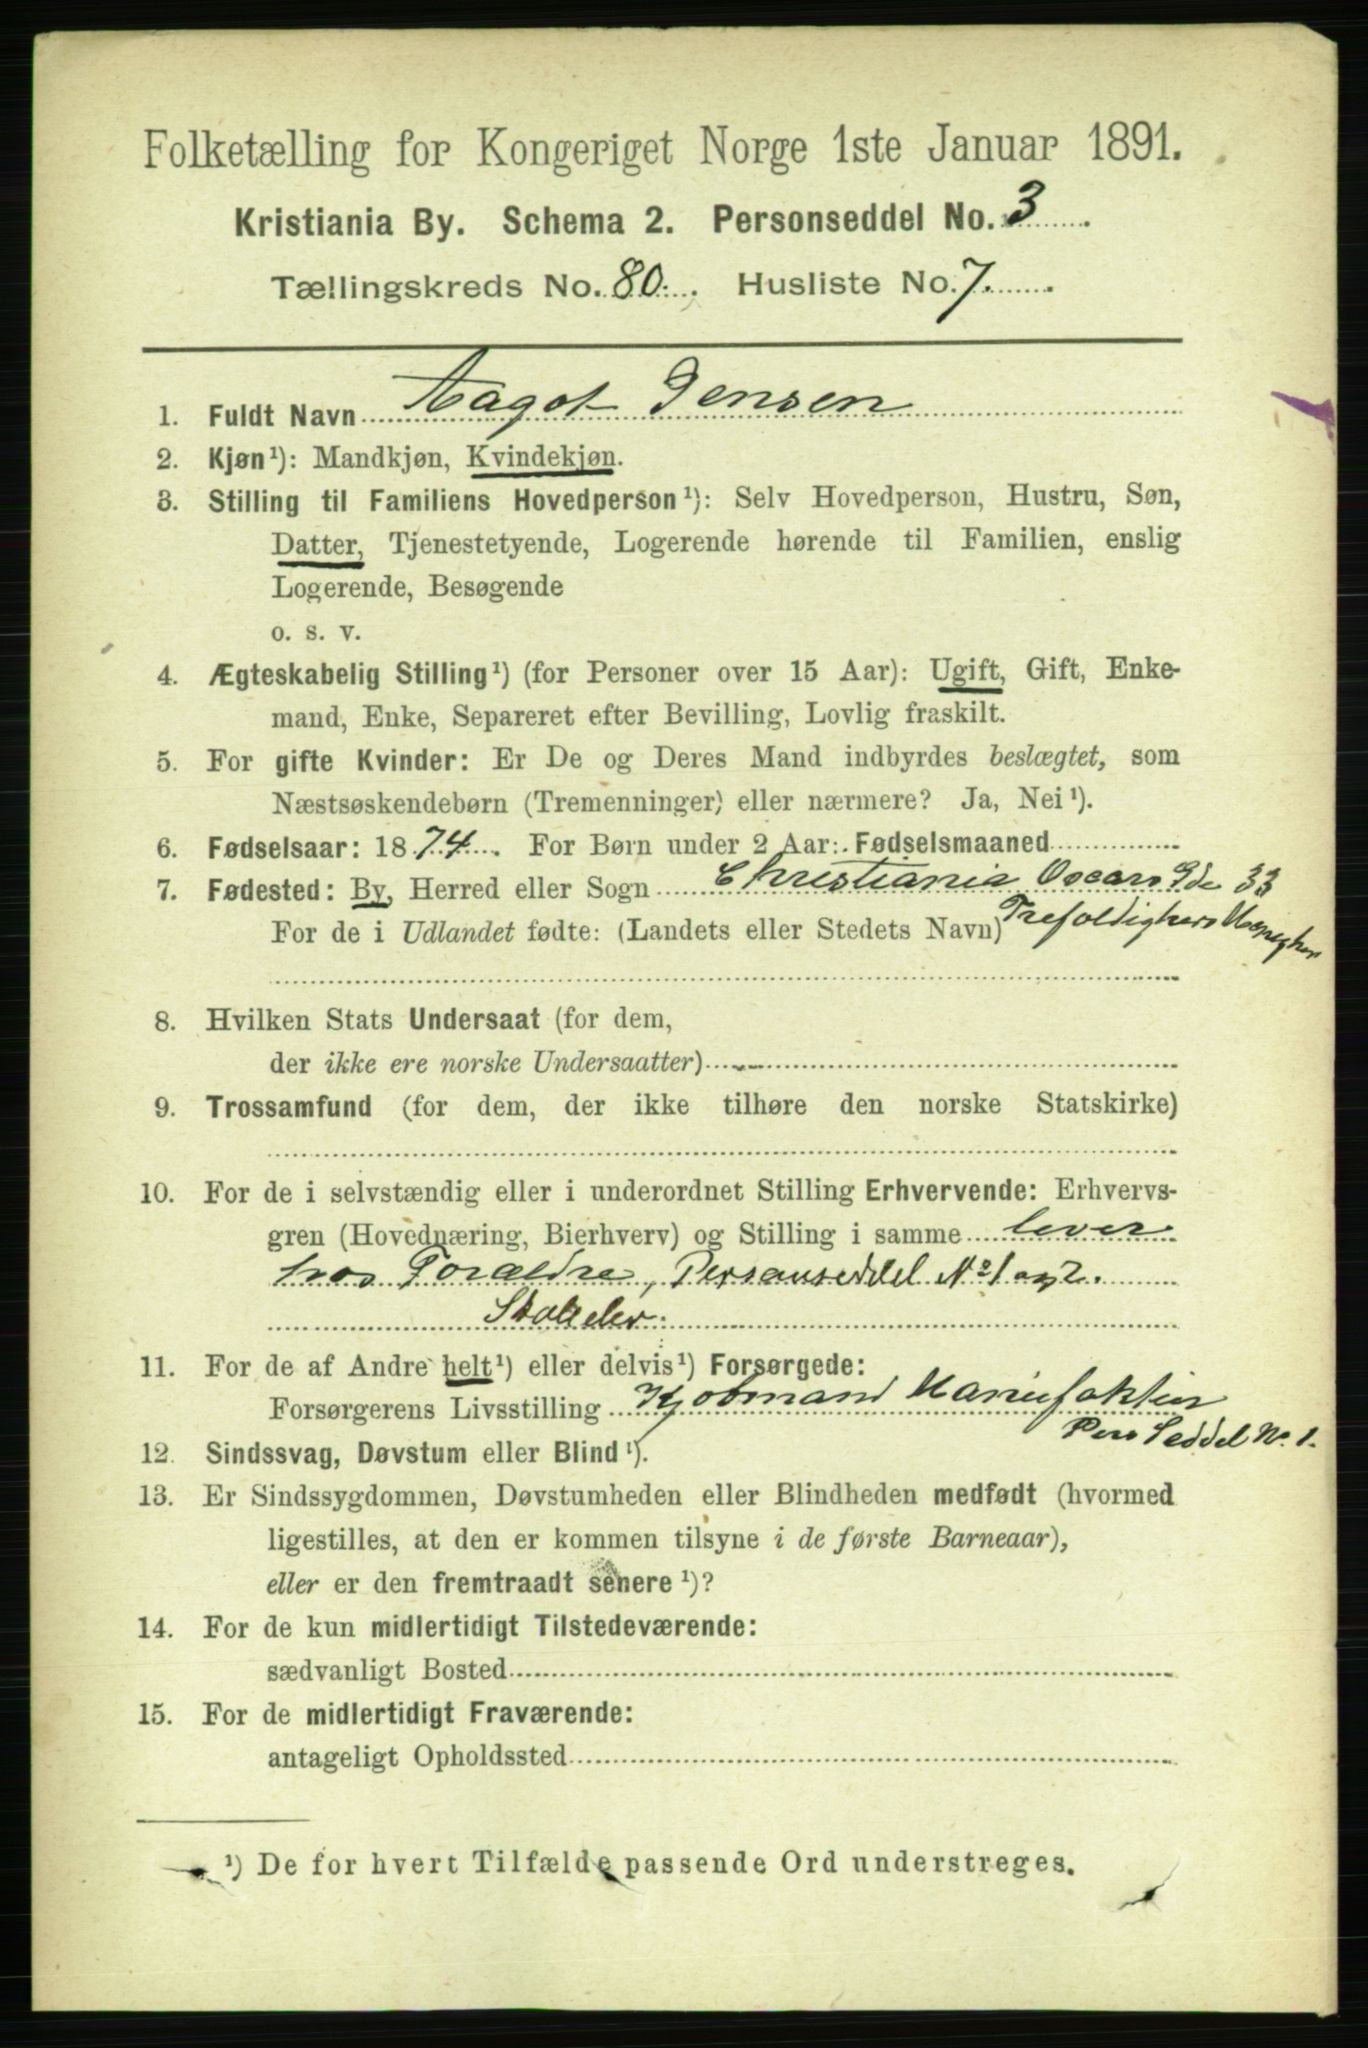 Folketælling for Kongeriget Norge 1ste Januar 1891.
Kristiania By. Schema 2. Personseddel No. 3
Tællingskreds No. 80. Husliste No. 7.
1. Fuldt Navn Aagot Jensen
2. Kjøn¹): Mandkjøn, Kvindekjøn.
3. Stilling til Familiens Hovedperson¹): Selv Hovedperson, Hustru, Søn,
Datter, Tjenestetyende, Logerende hørende til Familien, enslig
Logerende, Besøgende
o. s. v.
4. Ægteskabelig Stilling¹) (for Personer over 15 Aar): Ugift, Gift, Enke-
mand, Enke, Separeret efter Bevilling, Lovlig fraskilt.
5. For gifte Kvinder: Er De og Deres Mand indbyrdes beslægtet, som
Næstsøskendebørn (Tremenninger) eller nærmere? Ja, Nei¹).
6. Fødselsaar: 1874. For Børn under 2 Aar: Fødselsmaaned
7. Fødested: By, Herred eller Sogn Christiania Oscars Gde 33
For de i Udlandet fødte: (Landets eller Stedets Navn) Trefoldigheds Menighed
8. Hvilken Stats Undersaat (for dem,
der ikke ere norske Undersaatter)
9. Trossamfund (for dem, der ikke tilhøre den norske Statskirke)
10. For de i selvstændig eller i underordnet Stilling Erhvervende: Erhvervs-
gren (Hovednæring, Bierhverv) og Stilling i samme lever
hos Foraeldre, Personseddel No 1 og 2.
Skoleelev.
11. For de af Andre helt¹) eller delvis¹) Forsørgede:
Forsørgerens Livsstilling Kjøbmand Manufaktur
Pers Seddel No. 1.
12. Sindssvag, Døvstum eller Blind¹).
13. Er Sindssygdommen, Døvstumheden eller Blindheden medfødt (hvormed
ligestilles, at den er kommen tilsyne i de første Barneaar),
eller er den fremtraadt senere¹)?
14. For de kun midlertidigt Tilstedeværende:
sædvanligt Bosted
15. For de midlertidigt Fraværende:
antageligt Opholdssted
¹) De for hvert Tilfælde passende Ord understreges.